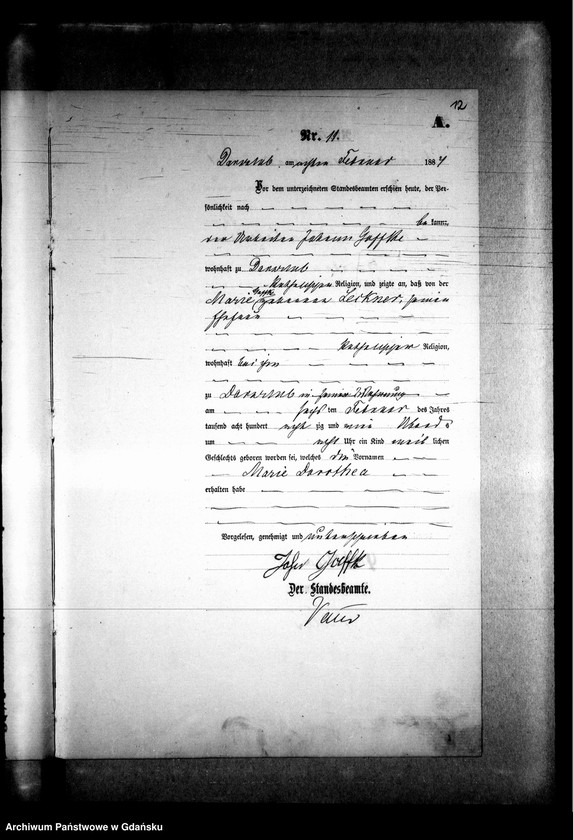 12
A.
Nr. 11.
am achten Februar 1884
Vor dem unterzeichneten Standesbeamten erschien heute, der Per-
sönlichkeit nach
be kannt,
der Arbeiter Johann Goffke
wohnhaft zu
katholischer Religion, und zeigte an, daß von der
Marie Goffke geborenen Leckner, seiner
Ehefrau
katholischer Religion,
wohnhaft bei ihm
zu in seiner Wohnung
am sechs ten Februar des Jahres
tausend acht hundert acht zig und vier Abends
um acht Uhr ein Kind weib lichen
Geschlechts geboren worden sei, welches die Vornamen
Marie Dorothea
erhalten habe
Vorgelesen, genehmigt und unterschrieben
Goffke
Der Standesbeamte.
Archiwum Państwowe w Gdańsku